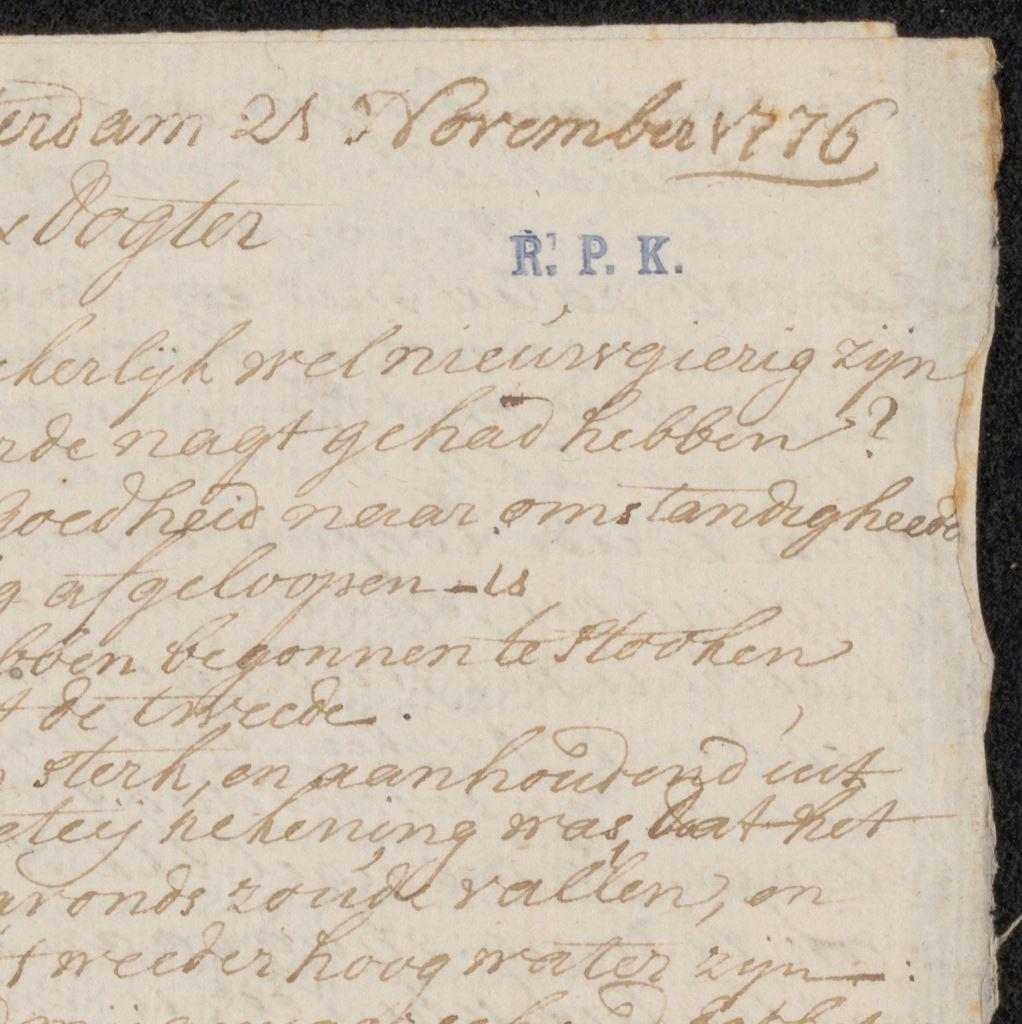 erdam 21 November 1776
Dogter
R. P. K.
kerlijk wel nieuwgierig zijn
rde nagt gehad hebben?
goedheid naar omstandigheede
g afgeloopen is
bben begonnen te stooken
t de tweede.
sterk, en aanhoudend uit
teij rekening was, dat het
avonds zoude vallen, en
t weeder hoog water zijn